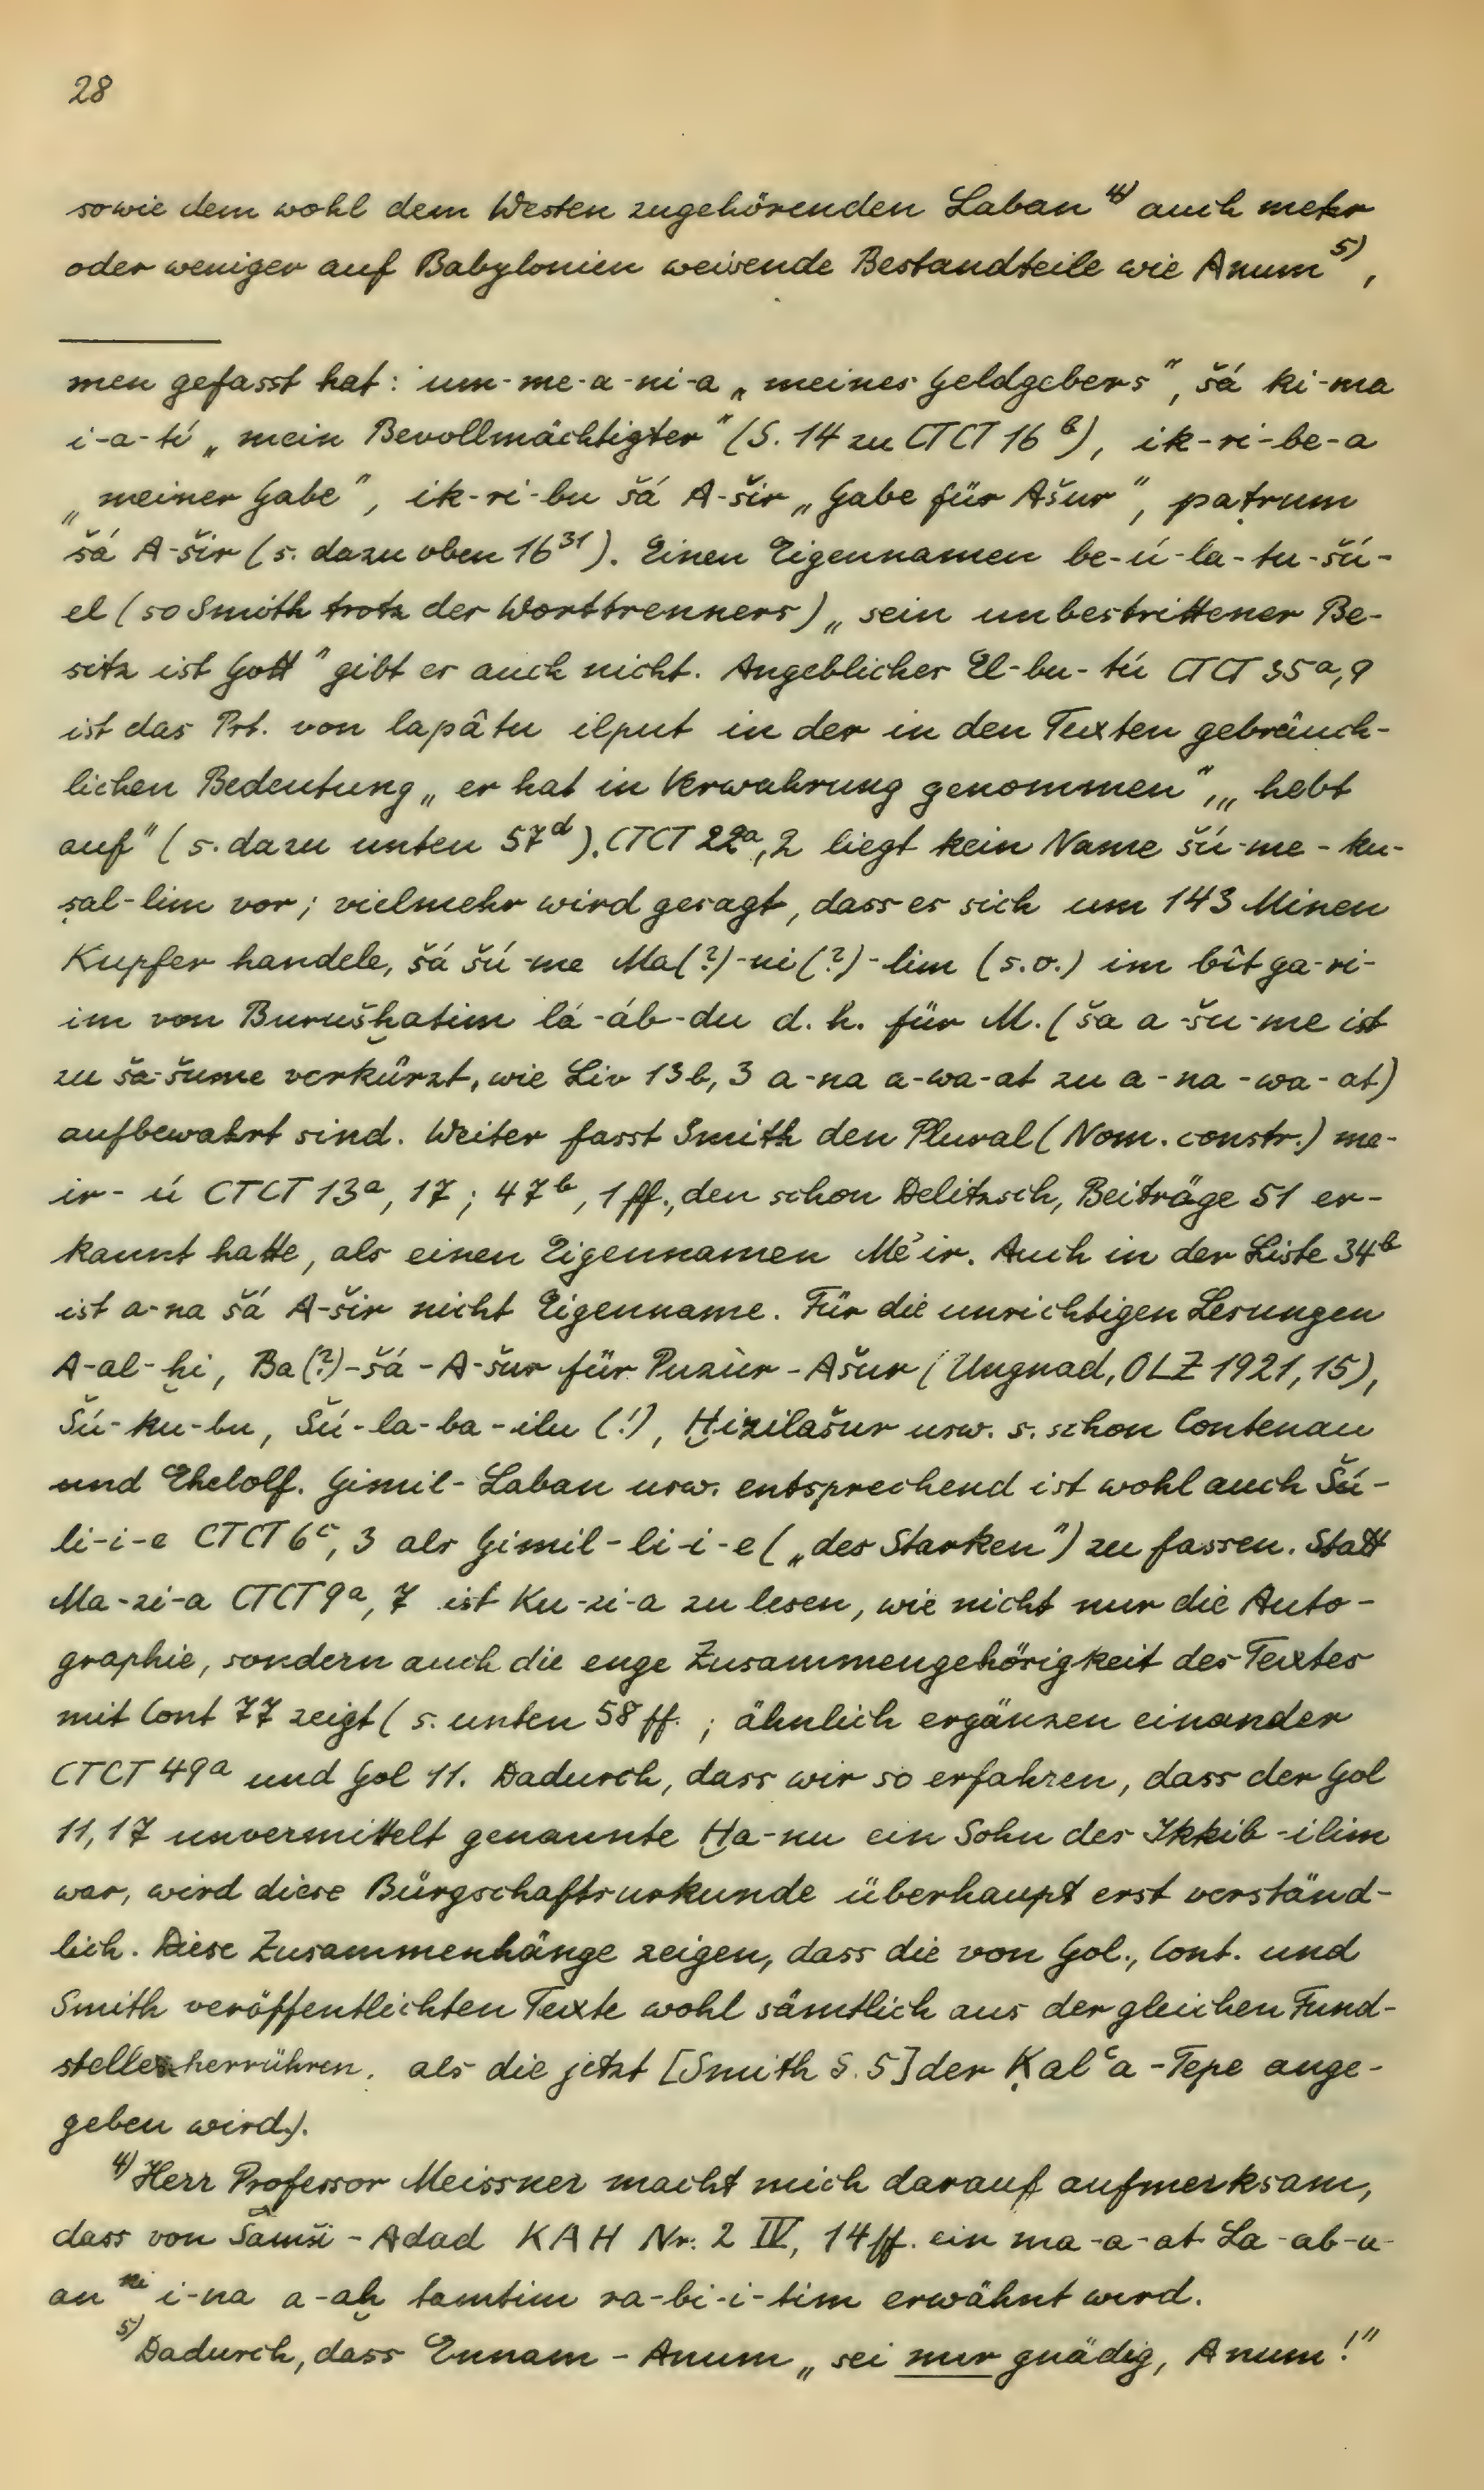 28
sowie dem wohl dem Westen zugehörenden Laban 4) auch mehr
oder weniger auf Babylonien weisende Bestandteile wie Anum 5),
men gefasst hat: um-me-a-ni-a „meines Geldgebers", šá ki-ma
i-a-tí „mein Bevollmächtigter" (S. 14 zu CTCT 16 b), ik-ri-be-a
„meiner Gabe", ik-ri-bu šá A-šir „Gabe für Ašur", paṭrum
šá A-šir (s. dazu oben 16 31). Einen Eigennamen be-ú-la-tu-šú-
el (so Smith trotz der Worttrenners) „sein unbestrittener Be-
sitz ist Gott" gibt es auch nicht. Angeblicher El-bu-tú CTCT 35 a, 9
ist das Prt. von lapâtu ilput in der in den Texten gebräuch-
lichen Bedeutung „er hat in Verwahrung genommen", „hebt
auf" (s. dazu unten 57 d). CTCT 22 a, 2 liegt kein Name šú-me-ku-
ṣal-lim vor; vielmehr wird gesagt, dass es sich um 143 Minen
Kupfer handele, šá šú-me Ma(?)-ni(?)-lim (s.o.) im bît ga-ri-
im von Burušḫatim lá-áb-du d. h. für M. (ša a-šu-me ist
zu ša-šume verkürzt, wie Liv 13 b, 3 a-na a-wa-at zu a-na-wa-at)
aufbewahrt sind. Weiter fasst Smith den Plural (Nom. constr.) me-
ir-ú CTCT 13 a, 17; 47 b, 1 ff., den schon Delitzsch, Beiträge 51 er-
kannt hatte, als einen Eigennamen Me'ir. Auch in der Liste 34 b
ist a-na šá A-šir nicht Eigenname. Für die unrichtigen Lesungen
A-al-ḫi, Ba(?)-šá-A-šur für Puzùr-Ašur (Ungnad, OLZ 1921, 15),
Šú-ku-bu, Šú-la-ba-ilu (!), Ḫizilašur usw. s. schon Contenau
und Ehelolf. Gimil-Laban usw. entsprechend ist wohl auch Šú-
li-i-e CTCT 6 c, 3 als Gimil-li-i-e („des Starken") zu fassen. Statt
Ma-zi-a CTCT 9 a, 7 ist Ku-zi-a zu lesen, wie nicht nur die Auto-
graphie, sondern auch die enge Zusammengehörigkeit des Textes
mit Cont 77 zeigt (s. unten 58 ff.; ähnlich ergänzen einander
CTCT 49 a und Gol 11. Dadurch, dass wir so erfahren, dass der Gol
11, 17 unvermittelt genannte Ḫa-nu ein Sohn des Ikkib-ilim
war, wird diese Bürgschaftsurkunde überhaupt erst verständ-
lich. Diese Zusammenhänge zeigen, dass die von Gol., Cont. und
Smith veröffentlichten Texte wohl sämtlich aus der gleichen Fund-
stelle herrühren, als die jetzt [Smith S. 5] der Ḳalʿa-Tepe ange-
geben wird).
4) Herr Professor Meissner macht mich darauf aufmerksam,
dass von Šamši-Adad KAH Nr. 2 IV, 14 ff. ein ma-a-at La-ab-a-
an ki i-na a-aḫ tamtim ra-bi-i-tim erwähnt wird.
5) Dadurch, dass Ennam-Anum „sei mir gnädig, Anum!"